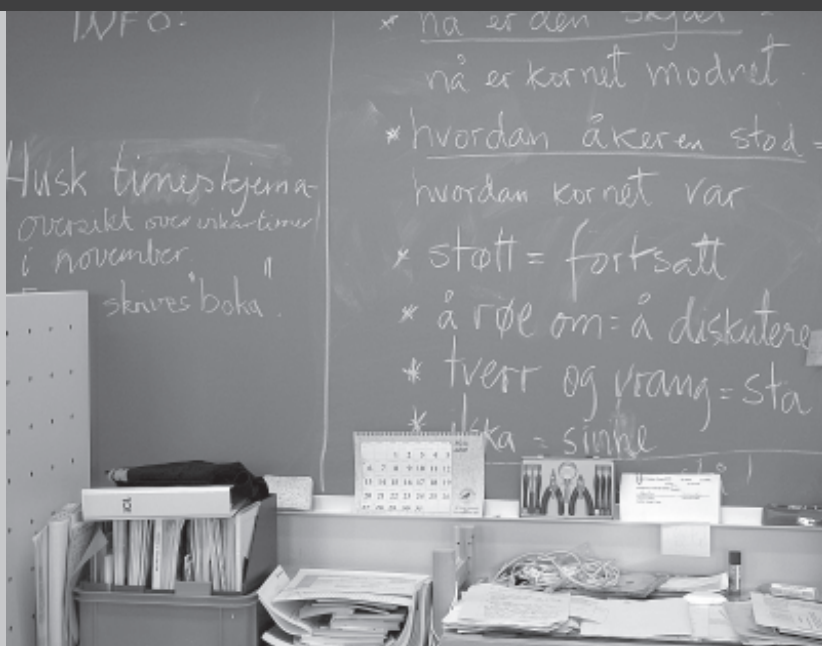 INFO!
Husk timeskjema-
oversikt over vikartimer
i november.
skrives "boka".
* nå er den skjær =
nå er kornet modnet.
* hvordan åkeren stod =
hvordan kornet var
* støtt = fortsatt
* å røe om = å diskutere
* tverr og vrang = sta
* ilska = sinne